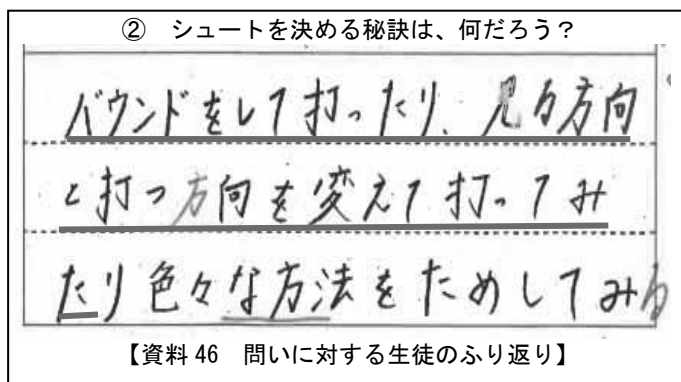 ② シュートを決める秘訣は、何だろう？
バウンドをして打ったり、見る方向
と打つ方向を変えて打ってみ
たり色々な方法をためしてみる
【資料 46 問いに対する生徒のふり返り】